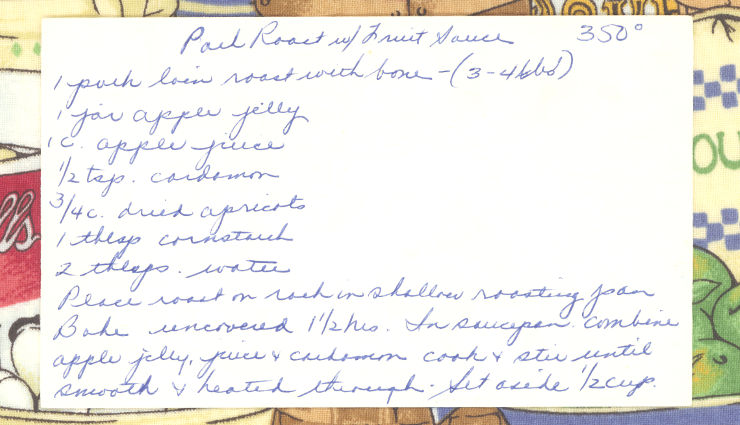 Pork Roast w/ Fruit Sauce 350°
1 pork loin roast with bone - (3-4 lbs)
1 jar apple jelly
1 c. apple juice
1/2 tsp. cardamon
3/4 c. dried apricots
1 tblsp cornstarch
2 tblsps. water
Place roast on rack in shallow roasting pan
Bake uncovered 1 1/2 hrs. In saucepan combine
apple jelly, juice & cardamon cook & stir until
smooth & heated through. Set aside 1/2 cup.